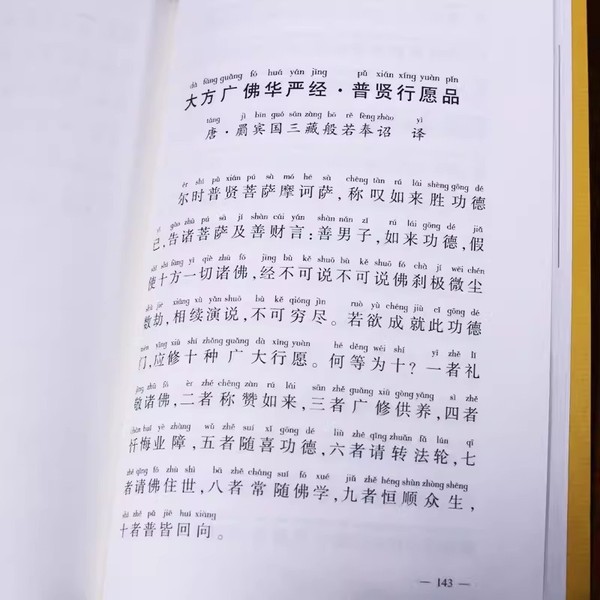 dà fāng guǎng fó huá yán jīng pǔ xián xíng yuàn pǐn
大方广佛华严经·普贤行愿品
táng jì bīn guó sān zàng bō rě fèng zhào yì
唐·罽宾国三藏般若奉诏 译
ěr shí pǔ xián pú sà mó hē sà chēng tàn rú lái shèng gōng dé
尔时普贤菩萨摩诃萨，称叹如来胜功德
yǐ gào zhū pú sà jí shàn cái yán shàn nán zǐ rú lái gōng dé jiǎ
已，告诸菩萨及善财言：善男子，如来功德，假
shǐ shí fāng yí qiè zhū fó jīng bù kě shuō bù kě shuō fó chà jí wēi chén
使十方一切诸佛，经不可说不可说佛刹极微尘
shù jié xiāng xù yǎn shuō bù kě qióng jìn ruò yù chéng jiù cǐ gōng dé
数劫，相续演说，不可穷尽。若欲成就此功德
mén yīng xiū shí zhǒng guǎng dà xíng yuàn hé děng wéi shí yī zhě lǐ
门，应修十种广大行愿。何等为十？一者礼
jìng zhū fó èr zhě chēng zàn rú lái sān zhě guǎng xiū gòng yǎng sì zhě
敬诸佛，二者称赞如来，三者广修供养，四者
chàn huǐ yè zhàng wǔ zhě suí xǐ gōng dé liù zhě qǐng zhuǎn fǎ lún qī
忏悔业障，五者随喜功德，六者请转法轮，七
zhě qǐng fó zhù shì bā zhě cháng suí fó xué jiǔ zhě héng shùn zhòng shēng
者请佛住世，八者常随佛学，九者恒顺众生，
shí zhě pǔ jiē huí xiàng
十者普皆回向。
— 143 —